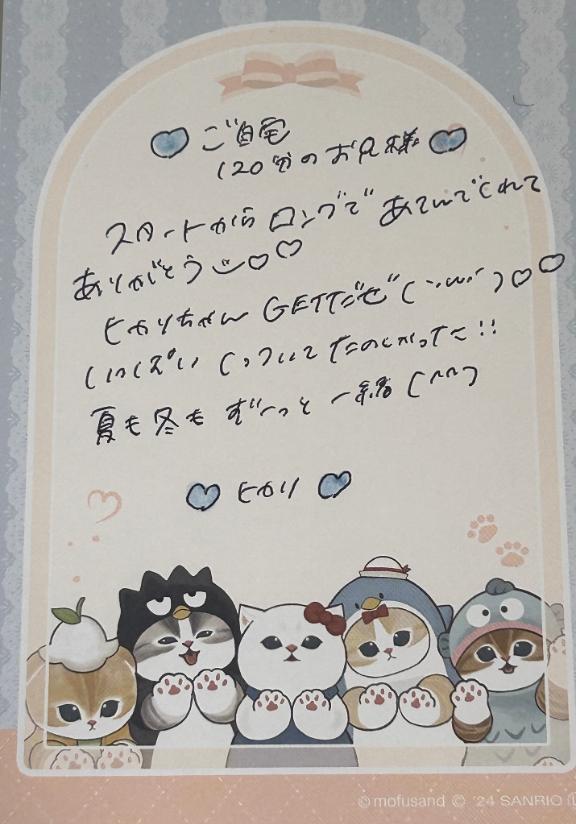 ご自宅
120分のお兄様
スタートからロングであそんでくれて
ありがとう♡♡
ヒカリちゃんGETだぜ(`･ω･´)♡♡
いっぱい くっついて たのしかった!!
夏も冬も ずーっと 一緒 (^^)
ヒカリ
©mofusand © '24 SANRIO